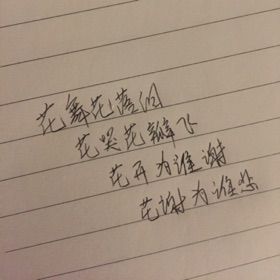 花舞花落泪
花哭花瓣飞
花开为谁谢
花谢为谁悲